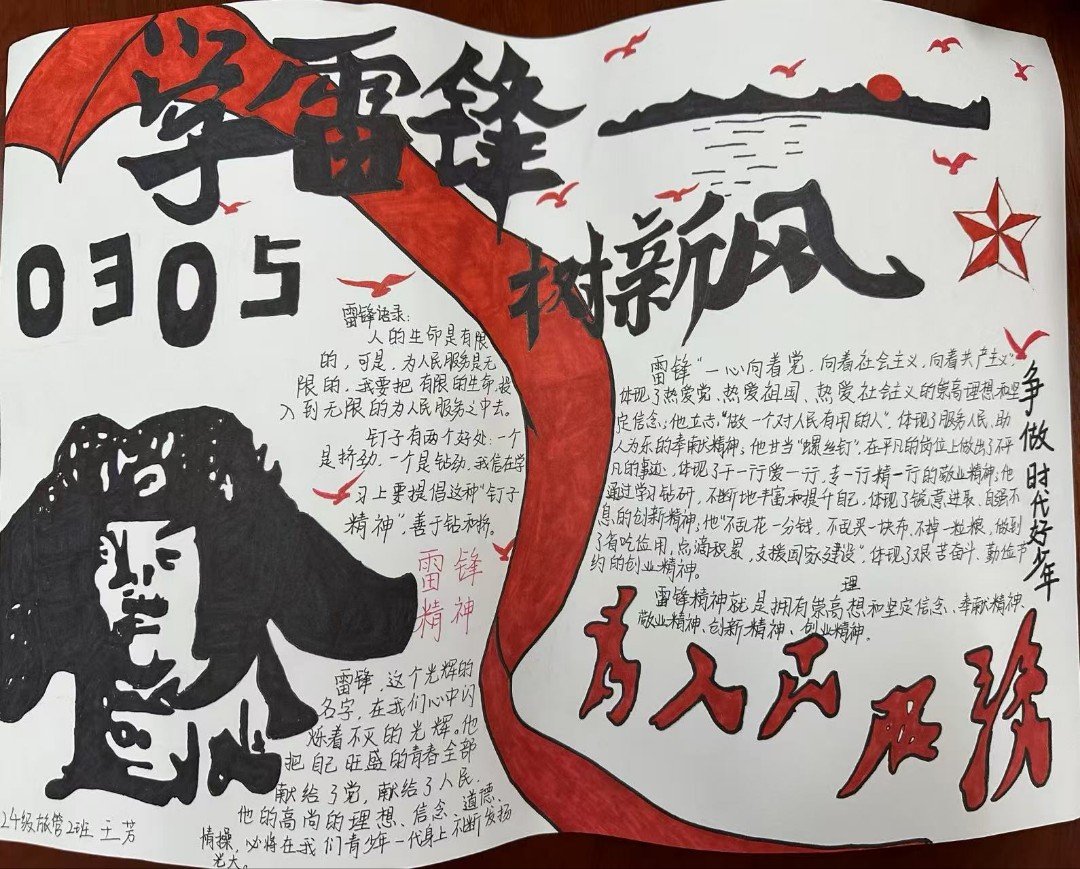 学雷锋
树新风
0305
雷锋语录:
人的生命是有限
的，可是，为人民服务是无
限的，我要把有限的生命，投
入到无限的为人民服务之中去。
钉子有两个好处:一个
是挤劲，一个是钻劲，我信在学
习上要提倡这种“钉子
精神”，善于钻和挤。
雷锋
精神
雷锋，这个光辉的
名字，在我们心中闪
烁着不灭的光辉。他
把自己旺盛的青春全部
献给了党，献给了人民.
他的高尚的理想、信念、道德、
情操，必将在我们青少年一代身上不断发扬
光大。
24级旅管2班 王芳
雷锋“一心向着党，向着社会主义，向着共产主义”，
体现了热爱党、热爱祖国、热爱社会主义的崇高理想和坚
定信念；他立志“做一个对人民有用的人”，体现了服务人民、助
人为乐的奉献精神；他甘当“螺丝钉”，在平凡的岗位上做出了不平
凡的事迹，体现了干一行爱一行，专一行精一行的敬业精神；他
通过学习钻研，不断地丰富和提升自己，体现了锐意进取、自强不
息的创新精神；他“不乱花一分钱，不乱买一块布，不掉一粒粮，做到
了省吃俭用，点滴积累，支援国家建设”，体现了艰苦奋斗、勤俭节
约的创业精神。
雷锋精神就是拥有崇高理想和坚定信念、奉献精神、
敬业精神、创新精神、创业精神。
争做时代好少年
为人民服务